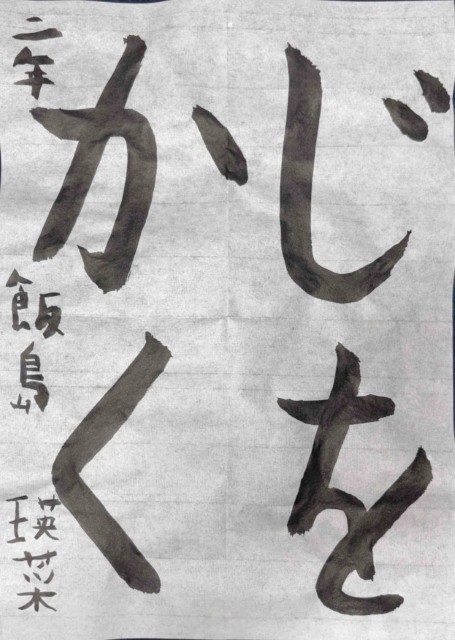 じを
かく
二年 飯島 瑛菜